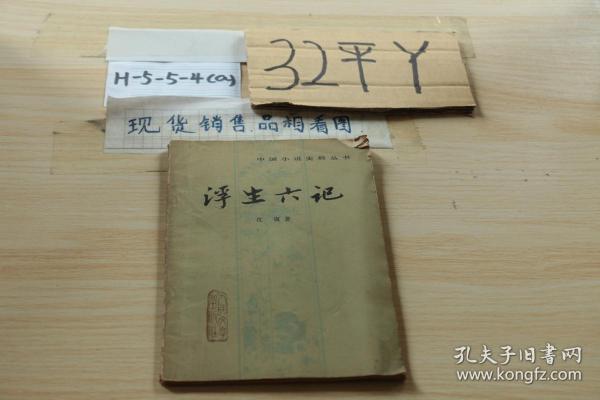 H-5-5-4(a)
32平丫
现货销售品相看图
中国小说史料丛书
浮生六记
沈復著
孔夫子旧书网
www.kongfz.com